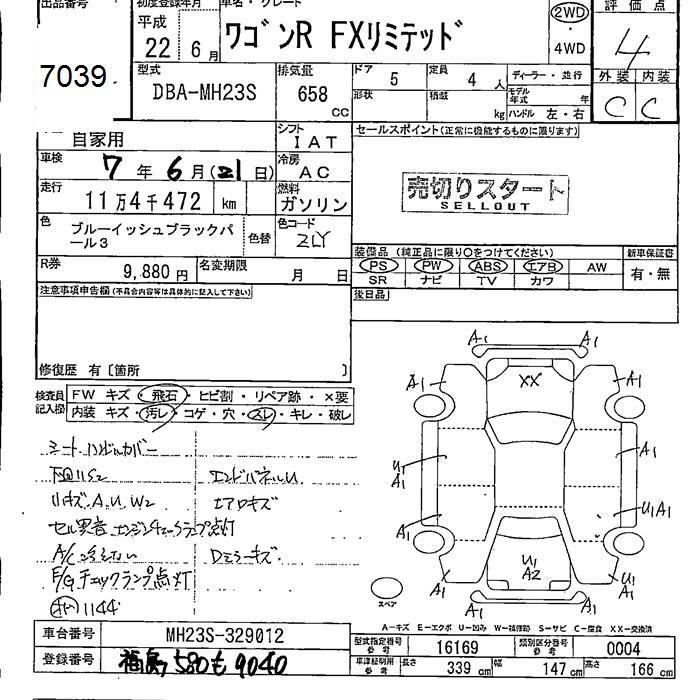 出品番号 初度登録年月 車名・グレード 評価点
平成 22 6月 ワゴンR FXリミテッド 2WD 4
・
4WD
7039
型式 DBA-MH23S 排気量 658 CC ドア 5 定員 4人 ディーラー・並行 外装 内装
形状 積載 kg モデル年式 年 C C
ハンドル 左・右
自家用 シフト IAT セールスポイント(正常に機能するものに限ります)
車検 7年6月(21日) 冷房 AC
売切りスタート
SELLOUT
走行 11万4千472 km 燃料 ガソリン
色 ブルーイッシュブラックパール3 色替 色コード ZLY
装備品 (純正品に限り○をつけてください) 新車保証書
R券 9,880円 名変期限 月 日 PS PW ABS エアB AW 有・無
SR ナビ TV カワ
注意事項申告欄(不具合内容等は具体的に記入して下さい) 後日品
修復歴 有〔箇所 〕
検査員記入欄 FW キズ・飛石・ヒビ割・リペア跡・×要
内装 キズ・汚レ・コゲ・穴・スレ・キレ・破レ
シートハンドルカバー
下回りS2 エンドパネルU
リキズ.A.U.W2 エアロキズ
セル異音 エンジンチェックランプ点灯
A/C冷えない Dミラーキズ
E/Gチェックランプ点灯
1144
A1 A1
A1 XX A1
U1 A1 A1
A1 U1A1
U1 A2
A1 A1 A1 U1 A1
スペア
A−キズ E−エクボ U−凹み W−補修跡 S−サビ C−腐食 XX−交換済
車台番号 MH23S-329012 型式指定番号 参考 16169 類別区分番号 参考 0004
登録番号 福島 580 も 9040 車庫証明用 参考 長さ 339 cm 幅 147 cm 高さ 166 cm